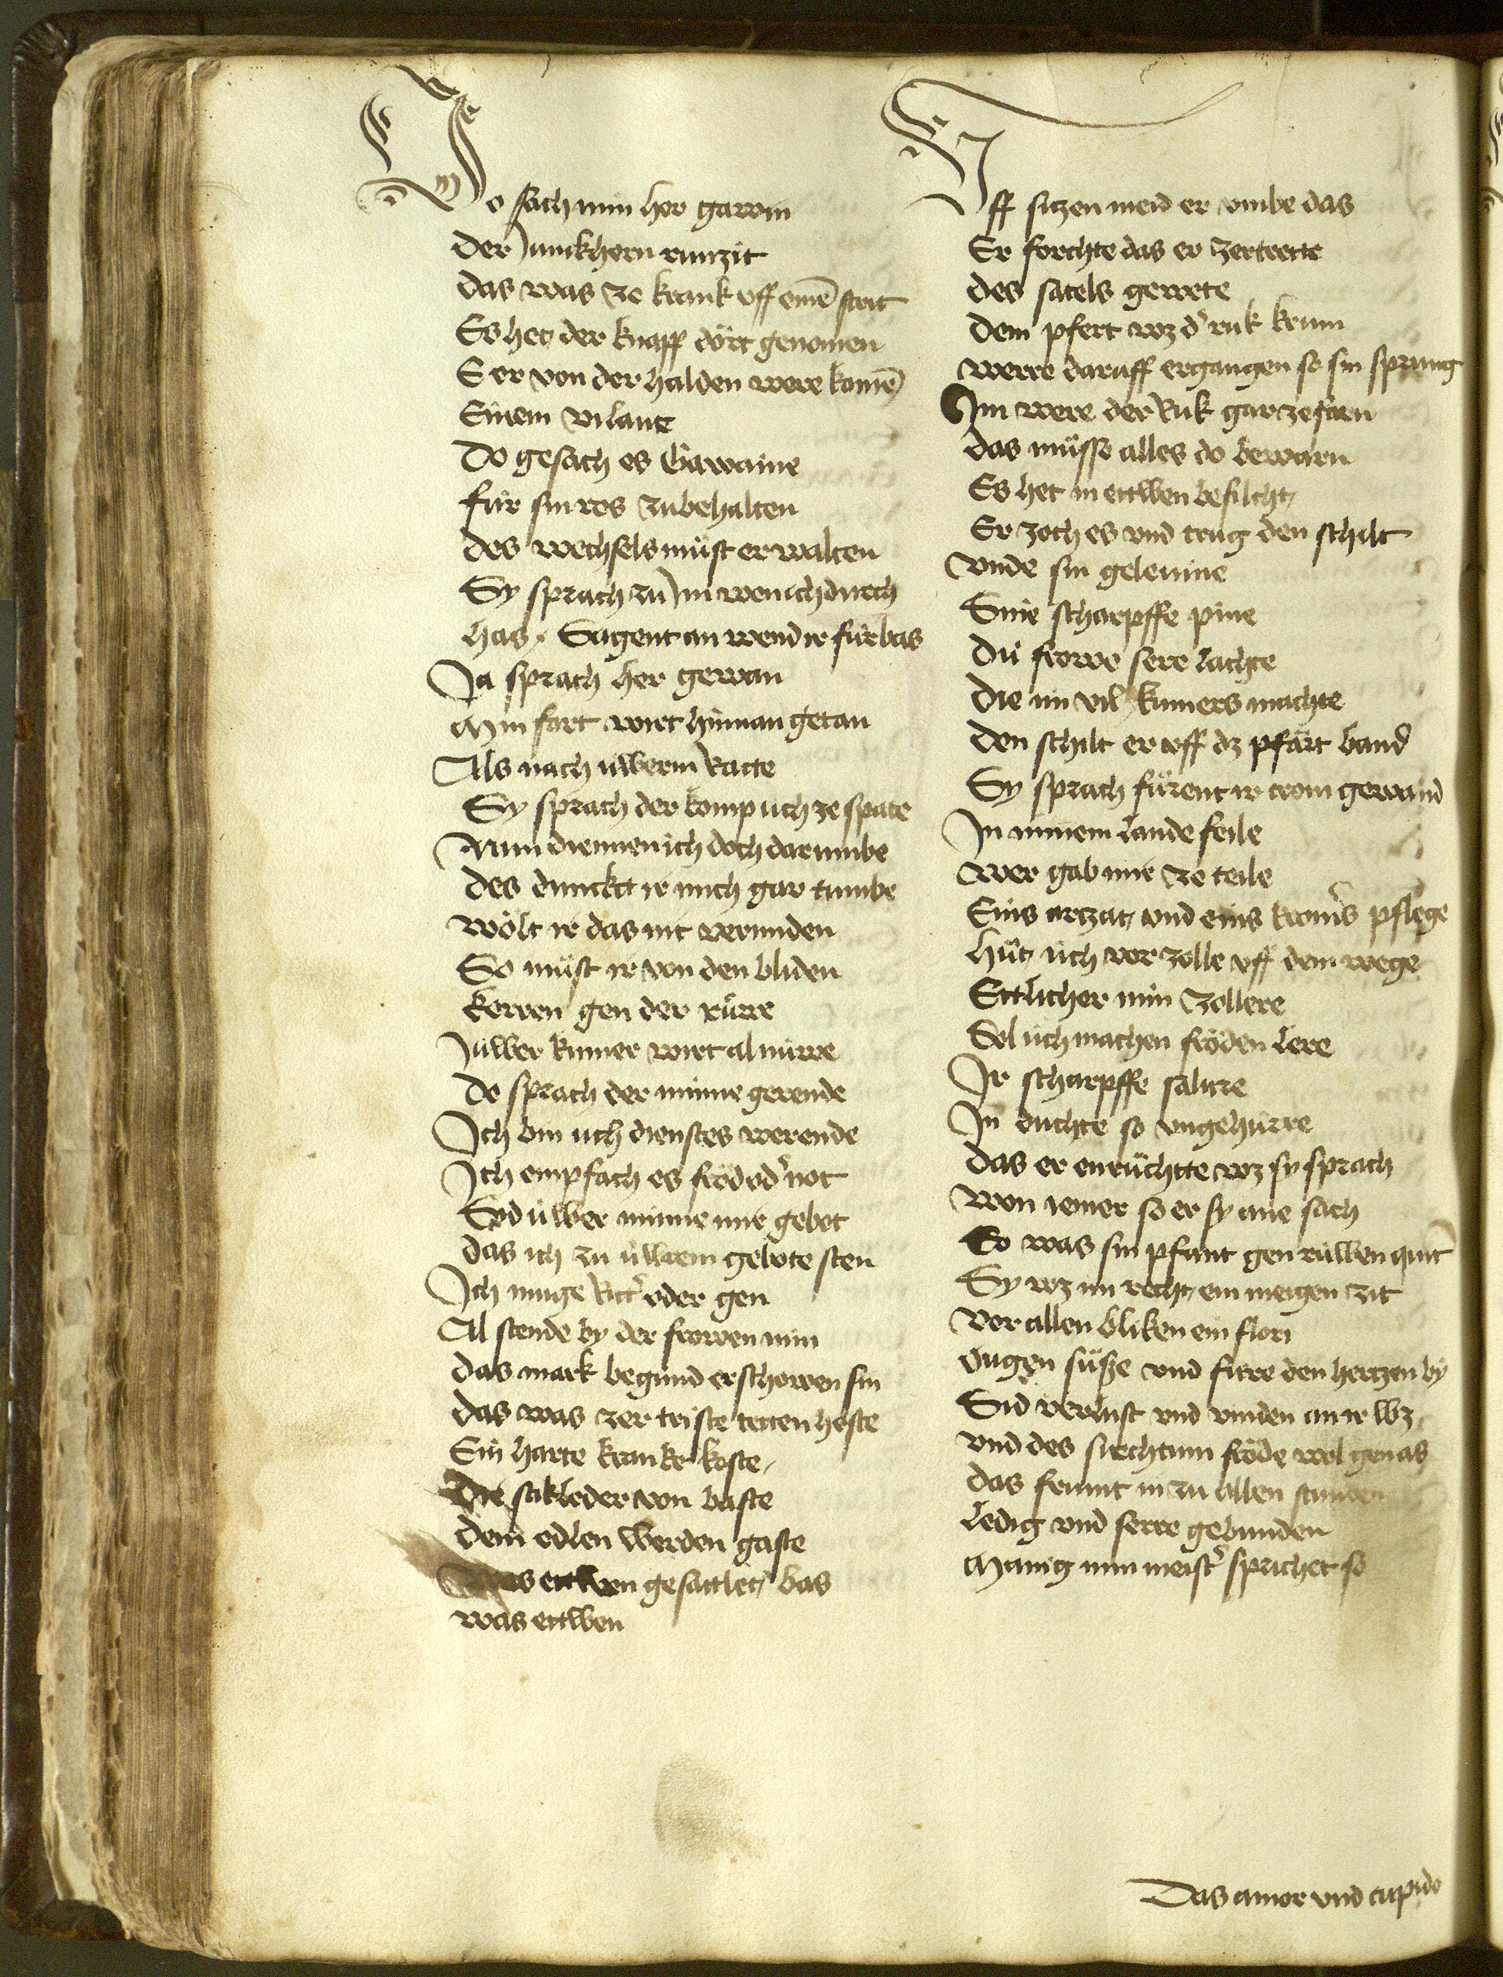 Do sach min her gawin
Der Junckhern runzit
Das was ze krank uff eine strit
Es het der knapp dört genomen
E er von der halden were kome
Einem vilane
Do gesach es Gawaine
für sin ros zubehalten
des wechsels müst er walten
Sy sprach zu Im wen ich durch
has. Sagent an wend ir fürbas
Ja sprach her gewan
Min fart wirt hinnan getan
Als nach üwerm Ratte
Sy sprach der kompt üch ze spate
Nun diennen ich doch darumbe
des dunckt ir mich gar tumbe
wölt ir das nit vermiden
So müst ir von den bliden
kerren gen der rüwe
Jüwer kumer wirt al nüwe
Do sprach der minne gerende
Ich bin üch dienstes werende
Ich empfach es fröd od not
Syd üwer minne mir gebot
das ich zu üwrem gebote sten
Ich müge Ritt oder gen
Al stende by der frowen min
das mark begund er schowen sin
das was zer triste tenen heste
Ein harte kranke koste
Die stikleder von baste
Dem edlen werden gaste
Was ettwen gesattlet bas
was ettwen
Uff sitzen meid er umbe das
Er forchte das er zertrette
des satels gewete
Dem pfert wz d ruk krum
were daruff ergangen so sin sprung
Im were der Ruk gar zefarn
das müsse alles do bewarn
Es het in ettwen befilcht
Er zoch es und trug den schilt
Unde sin glevine
Sine scharpffe pine
Dü frowe sere lachte
die im vil kumers machte
den schilt er uff dz pfärt band
Sy sprach fürent ir crom gewand
In minem lande feile
wer gab mir ze teile
Eins artzat und eins kroms pflege
hüt üch vor zolle uff dem wege
Ettlicher min zollere
Sol üch machen fröden lere
Ir scharpffe salure
In duchte so ungehüre
das er enrüchtte wz sy sprach
won iemer so er sy ane sach
So was sin pfant gen rüwen quit
Sy wz im recht ein meigen zit
Vor allen bliken ein flori
Ougen süsse und surre den hertzen by
Sid verlust und vinden an ir wz
und des siechtum fröde wol genas
das frumt in zu allen stunden
ledig und serre gebunden
Manig min meist sprichet so
Das amor und cupido